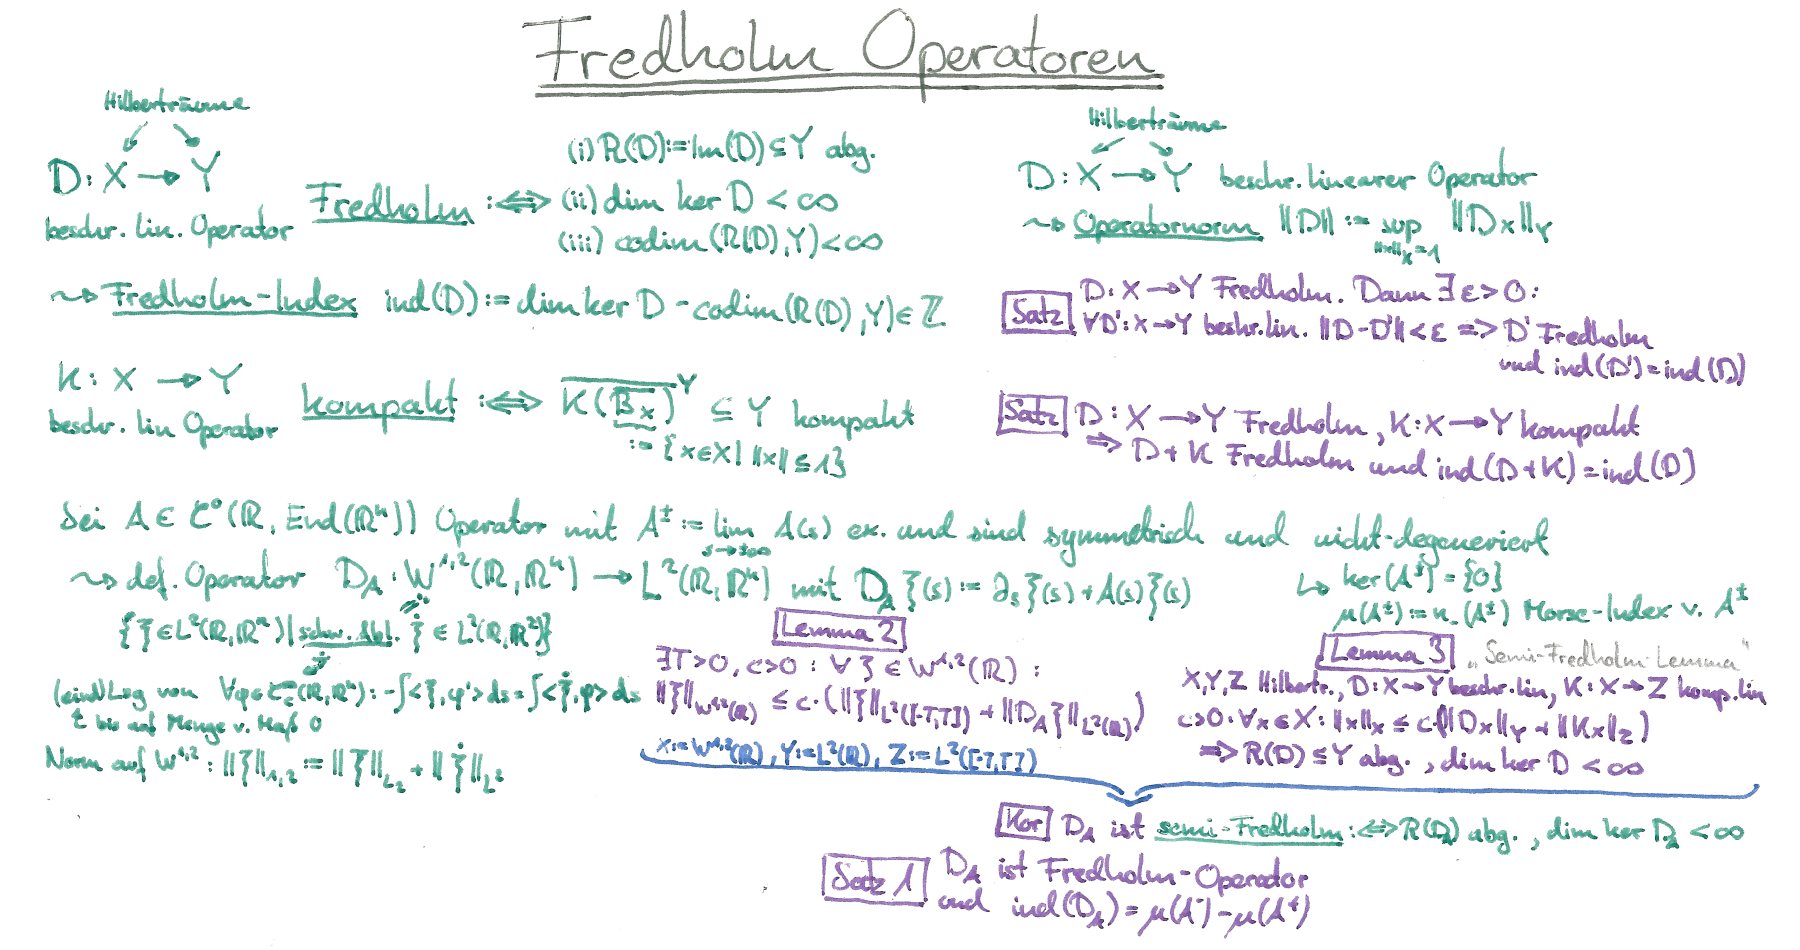 Fredholm Operatoren
Hilberträume
D: X → Y
beschr. lin. Operator
Fredholm :⇔
(i) R(D):=Im(D) ⊆ Y abg.
(ii) dim ker D < ∞
(iii) codim(R(D),Y) < ∞
⇝ Fredholm-Index ind(D) := dim ker D - codim(R(D),Y) ∈ ℤ
K: X → Y
beschr. lin Operator
kompakt :⇔ \overline{K(B_X)}^Y ⊆ Y kompakt
:= {x∈X | ||x|| ≤ 1}
Hilberträume
D: X → Y beschr. linearer Operator
⇝ Operatornorm ||D|| := sup ||Dx||_Y
||x||_X = 1
Satz D: X → Y Fredholm. Dann ∃ ε > 0:
∀D': X → Y beshr. lin. ||D-D'|| < ε => D' Fredholm
und ind(D') = ind(D)
Satz D: X → Y Fredholm, K: X → Y kompakt
⇒ D + K Fredholm und ind(D+K) = ind(D)
Sei A ∈ C⁰(ℝ, End(ℝⁿ)) Operator mit A^± := lim A(s) ex. und sind symmetrisch und nicht-degeneriert
s → ±∞
⇝ def. Operator D_A : W^{1,2}(ℝ,ℝⁿ) → L²(ℝ,ℝⁿ) mit D_A ξ(s) := ∂_s ξ(s) + A(s)ξ(s)
↳ ker(A^±) = {0}
μ(A^±) := n_-(A^±) Morse-Index v. A^±
{ξ∈L²(ℝ,ℝⁿ) | schw. Abl. ξ̇ ∈ L²(ℝ,ℝ²)}
(eind) Lsg von ∀φ∈C_c^∞(ℝ,ℝⁿ): -∫<ξ,φ'> ds = ∫<ξ̇,φ> ds
bis auf Menge v. Maß 0
Norm auf W^{1,2}: ||ξ||_{1,2} := ||ξ||_{L²} + ||ξ̇||_{L²}
Lemma 2
∃T>0, c>0 : ∀ ξ ∈ W^{1,2}(ℝ) :
||ξ||_{W^{1,2}(ℝ)} ≤ c·(||ξ||_{L²([-T,T])} + ||D_A ξ||_{L²(ℝ)})
X:=W^{1,2}(ℝ), Y:=L²(ℝ), Z:=L²([-T,T])
Lemma 3 „Semi-Fredholm-Lemma"
X,Y,Z Hilbertr., D: X → Y beschr. lin, K: X → Z komp. lin
c>0 · ∀x∈X: ||x||_X ≤ c·(||Dx||_Y + ||Kx||_Z)
⇒ R(D) ⊆ Y abg., dim ker D < ∞
Kor D_A ist semi-Fredholm :⇔ R(D_A) abg., dim ker D_A < ∞
Satz 1 D_A ist Fredholm-Operator
und ind(D_A) = μ(A^-) - μ(A^+)